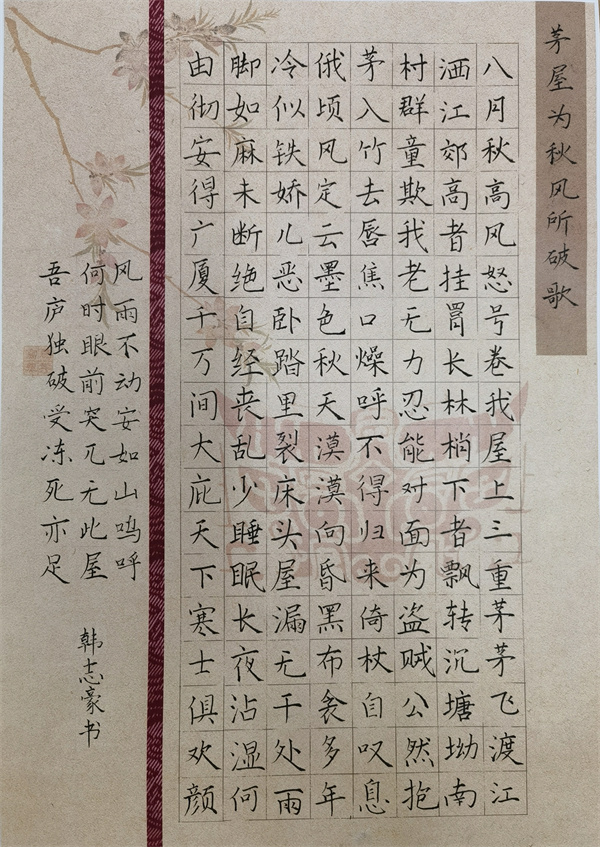 茅屋为秋风所破歌
八月秋高风怒号卷我屋上三重茅茅飞渡江
洒江郊高者挂罥长林梢下者飘转沉塘坳南
村群童欺我老无力忍能对面为盗贼公然抱
茅入竹去唇焦口燥呼不得归来倚杖自叹息
俄顷风定云墨色秋天漠漠向昏黑布衾多年
冷似铁娇儿恶卧踏里裂床头屋漏无干处雨
脚如麻未断绝自经丧乱少睡眠长夜沾湿何
由彻安得广厦千万间大庇天下寒士俱欢颜
风雨不动安如山呜呼
何时眼前突兀无此屋
吾庐独破受冻死亦足
韩志豪书